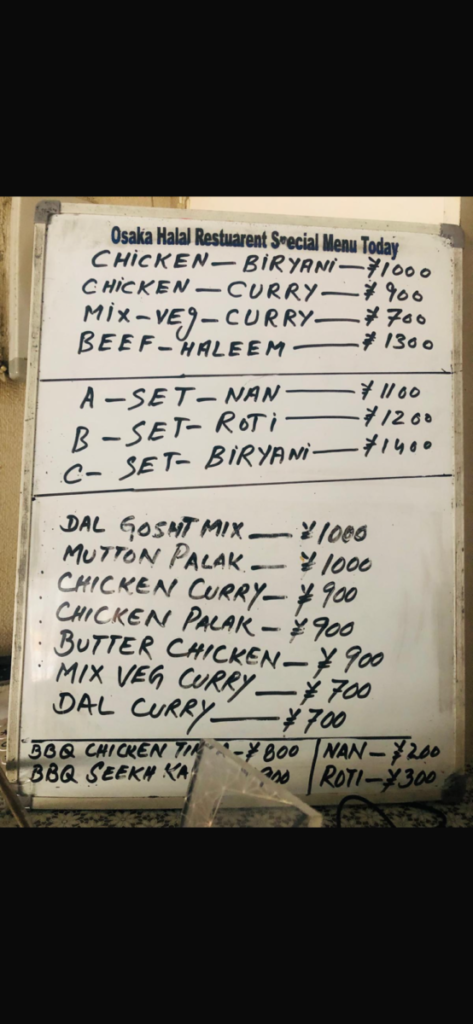 Osaka Halal Restuarent Special Menu Today
CHICKEN — BIRYANI — ¥1000
CHICKEN — CURRY — ¥ 900
MIX-VEG-CURRY — ¥ 700
BEEF-HALEEM — ¥ 1300
A-SET-NAN — ¥ 1100
B-SET-ROTI — ¥1200
C-SET-BIRYANI — ¥1400
DAL GOSHT MIX — ¥1000
MUTTON PALAK — ¥1000
CHICKEN CURRY — ¥900
CHICKEN PALAK — ¥900
BUTTER CHICKEN — ¥ 900
MIX VEG CURRY — ¥700
DAL CURRY — ¥700
BBQ CHICKEN — ¥800 | NAN — ¥200
BBQ SEEKH | ROTI — ¥300